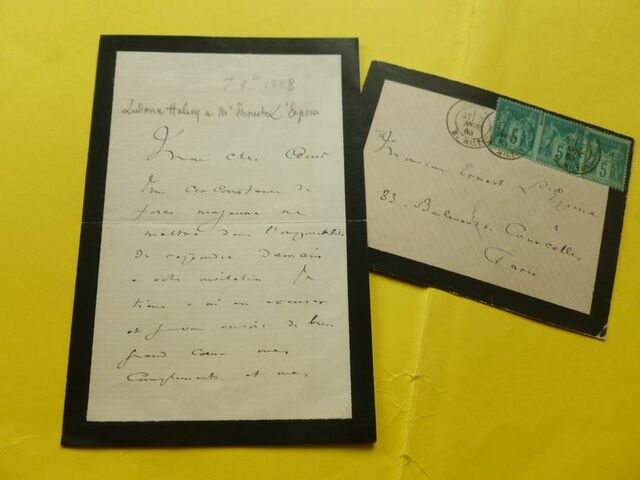 7 9bre 1883
Ludovic Halevy a Mr Ernest L'Epine
Mon cher
Une circonstance de
force majeure me
mettra dans l'impossibilité
de répondre demain
a votre invitation Je
tiens a m'en excuser
et vous envoie de bien
grand cœur mes
compliments et mes
Monsieur Ernest L'Epine
83. Boulevard Courcelles
Paris
5
5
5
83